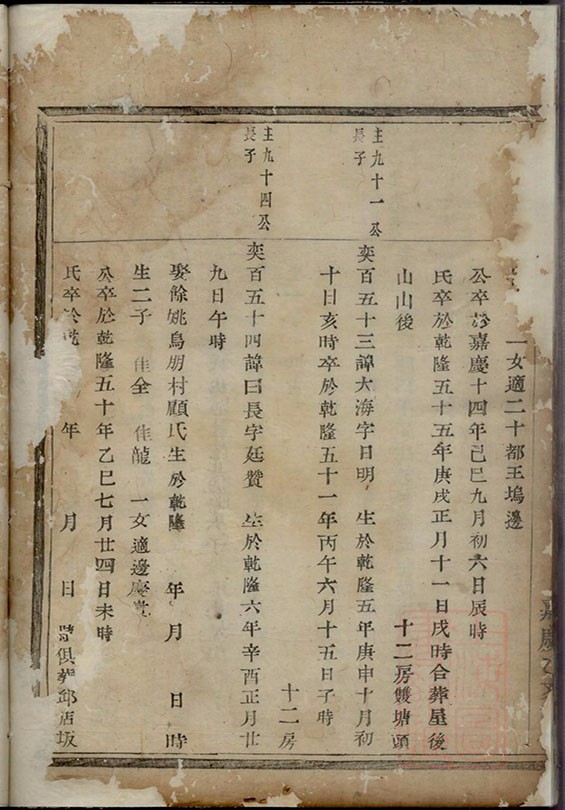 一女適二十都王塢邊
公卒於嘉慶十四年己巳九月初六日辰時
氏卒於乾隆五十五年庚戌正月十一日戌時合葬屋後
山山後　十二房雙塘頭
主九十一公
長子
奕百五十三諱大海字日明　生於乾隆五年庚申十月初
十日亥時卒於乾隆五十一年丙午六月十五日子時
十二房
主九十四公
長子
奕百五十四諱曰長字廷贊　生於乾隆六年辛酉正月廿
九日午時
娶餘姚烏明村顧氏生於乾隆　年　月　日　時
生二子　佳全　佳龍　一女適邊慶
公卒於乾隆五十年乙巳七月廿四日未時
氏卒於乾　年　月　日　時俱葬邱店坂
嘉慶乙亥